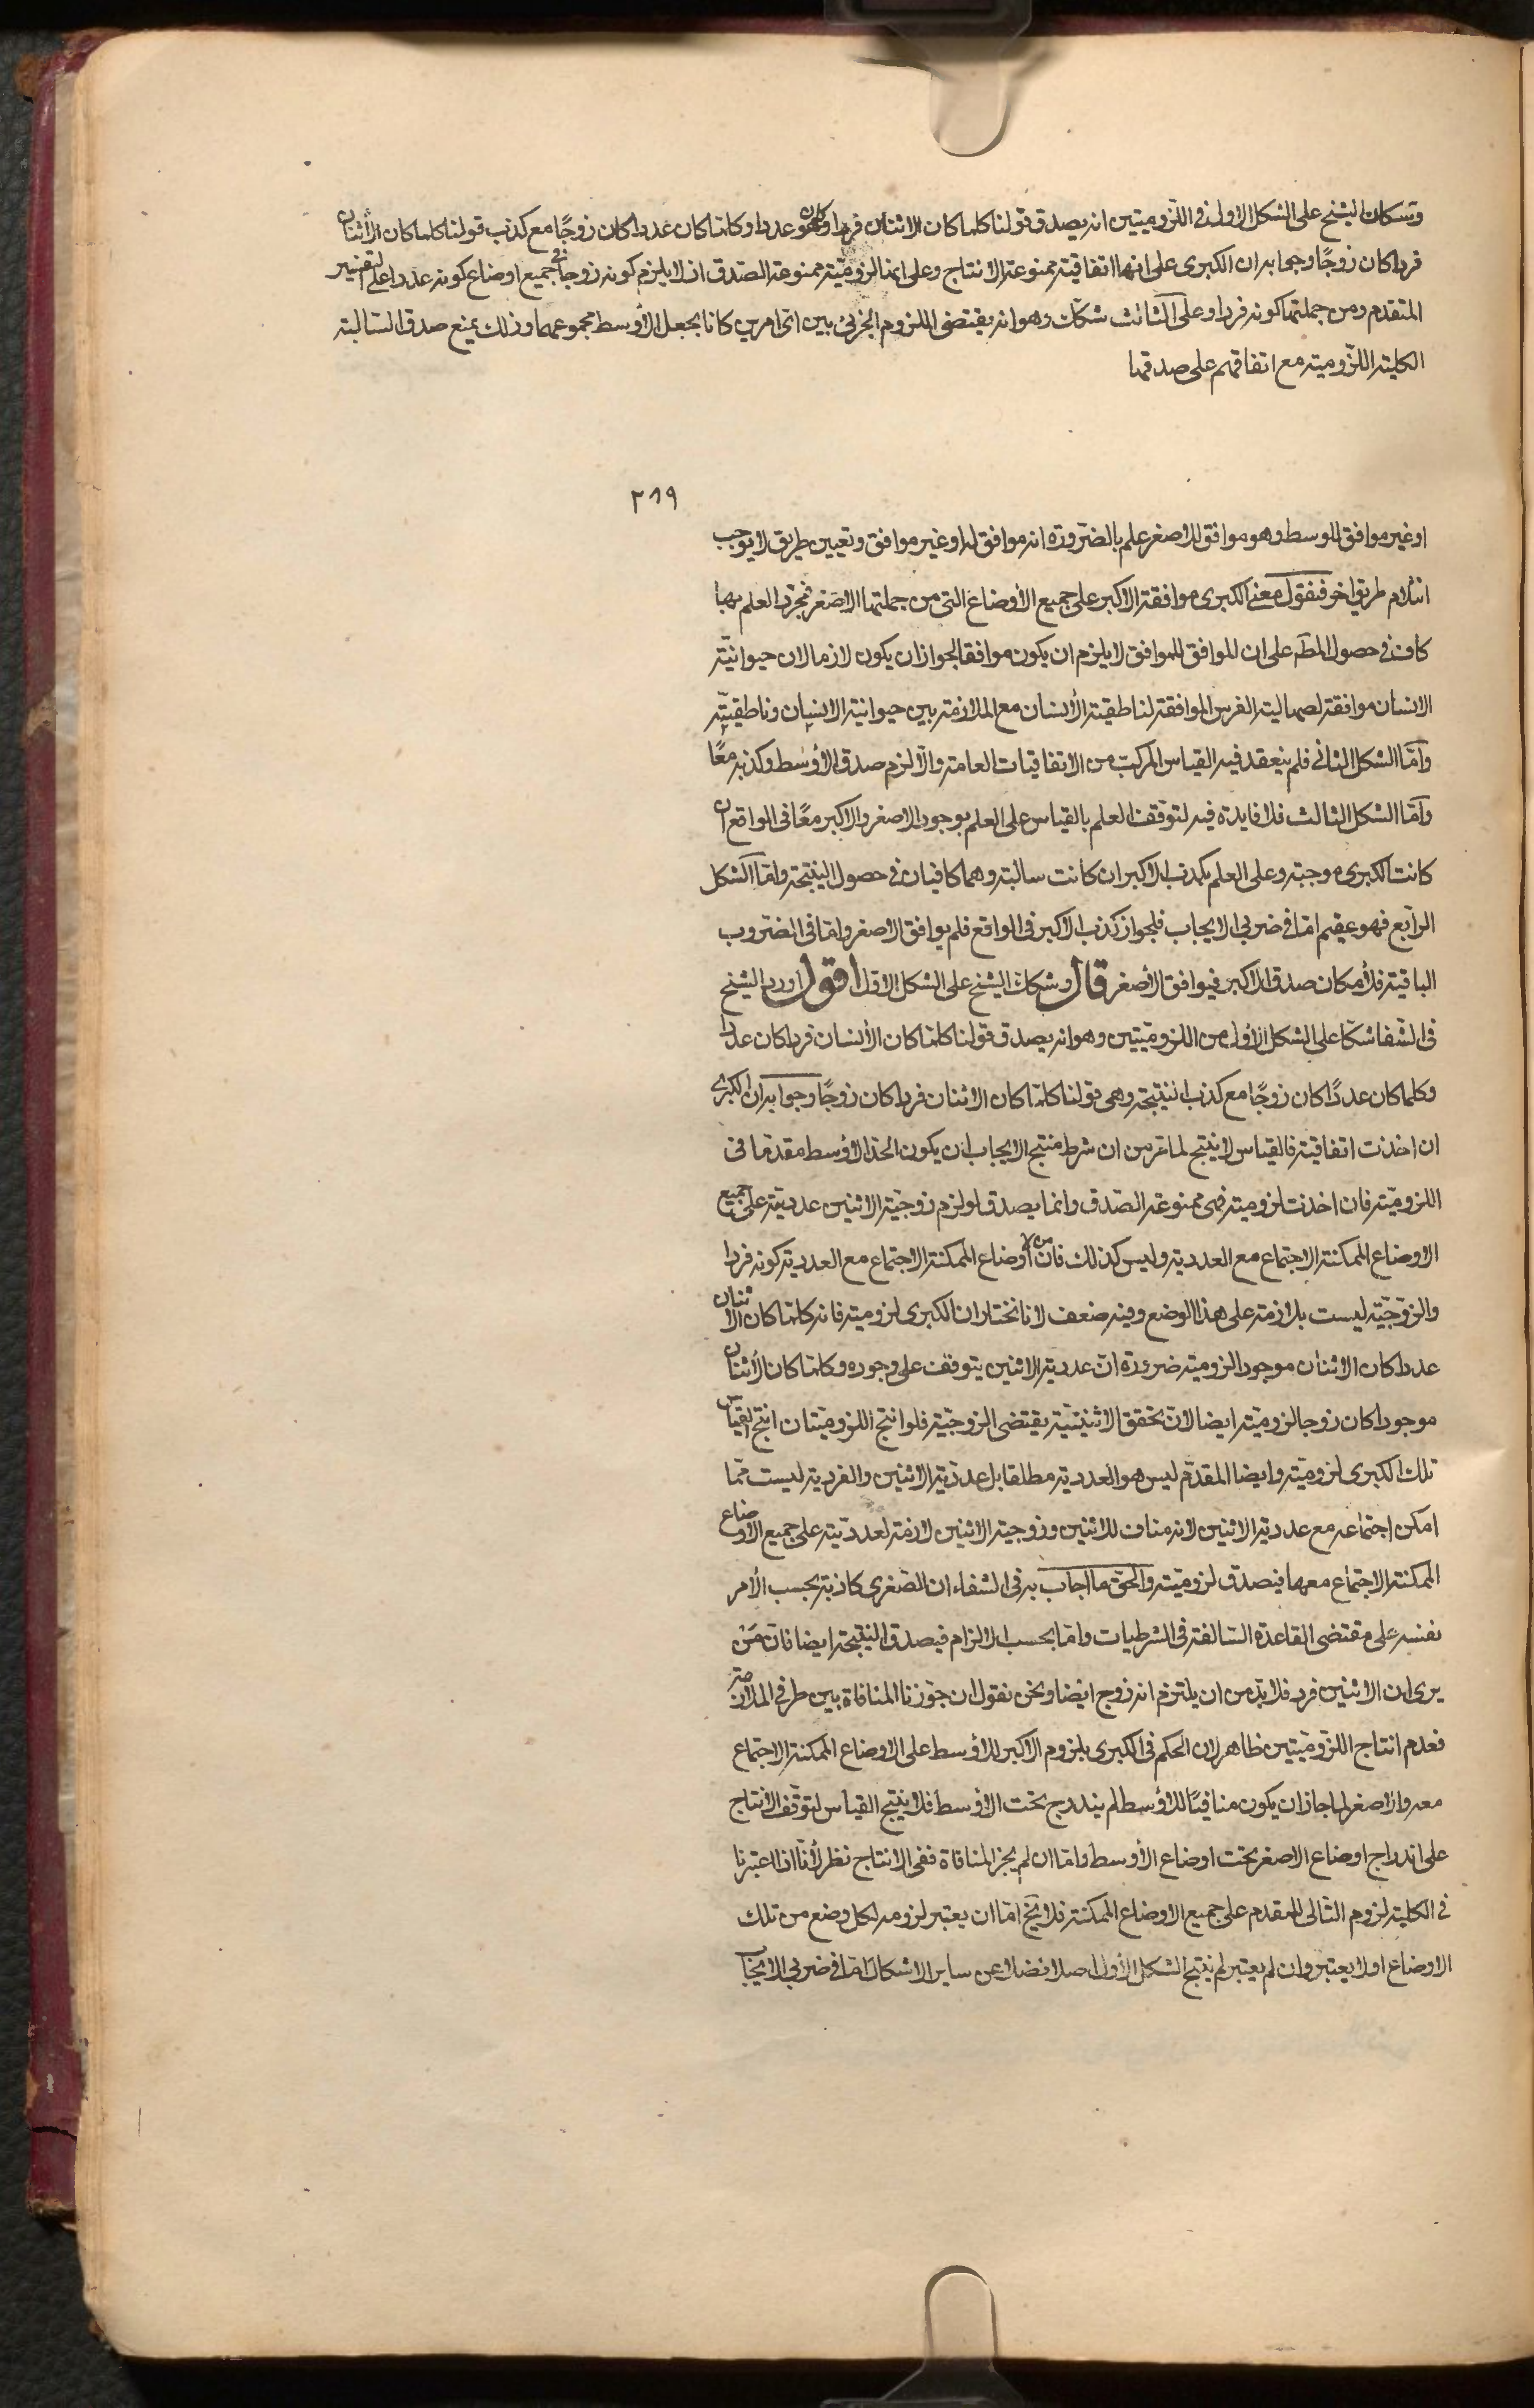 وتشكك الشيخ على الشكل الاول فى اللزوميتين انه يصدق قولنا كلما كان الاثنان فردا كان عددا وكلما كان عددا كان زوجًا مع كذب قولنا كلما كان الأثنان
فردا كان زوجًا وجوابه ان الكبرى على انها اتفاقية ممنوعة الانتاج وعلى انها لزومية ممنوعة الصدق اذ لا يلزم كونه زوجا فى جميع اوضاع كونه عددا على تقدير
المتقدم ومن جملتها كونه فردا وعلى الثالث شكك وهو انه يقتضى اللزوم الجزئى بين اى امرين كانا بجعل الأوسط مجموعهما وذلك يمنع صدق السالبة
الكلية اللزومية مع اتفاقهم على صدقها
٢١٩
او غير موافق للوسط وهو موافق للاصغر علم بالضرورة انه موافق له او غير موافق وتعيين طريق لا يوجب
انثلام طريق اخر فنقول معنى الكبرى موافقة الاكبر على جميع الأوضاع التى من جملتها الاصغر فمجرد العلم بها
كاف فى حصول المطـ على ان الموافق للموافق لا يلزم ان يكون موافقا لجواز ان يكون لازما لان حيوانية
الانسان موافقة لصهالية الفرس الموافقة لناطقية الأنسان مع الملازمة بين حيوانية الانسان وناطقيته
وامّا الشكل الثانى فلم ينعقد فيه القياس المركب من الاتفاقيات العامة والّا لزم صدق الأوسط وكذبه معًا
وامّا الشكل الثالث فلا فايدة فيه لتوقف العلم بالقياس على العلم بوجود الاصغر والاكبر معًا فى الواقع ان
كانت الكبرى موجبة وعلى العلم بكذب الاكبر ان كانت سالبة وهما كافيان فى حصول النتيجة وامّا الشكل
الرابع فهو عقيم امّا فى ضربى الايجاب فلجواز كذب الاكبر فى الواقع فلم يوافق الاصغر وامّا فى الضروب
الباقية فلأمكان صدق الاكبر فيوافق الأصغر قال وشكك الشيخ على الشكل الاول اقول اورد الشيخ
فى الشفا شكّا على الشكل الأول من اللزوميتين وهو انه يصدق قولنا كلما كان الأنسان فردا كان عددا
وكلما كان عددًا كان زوجًا مع كذب النتيجة وهى قولنا كلما كان الاثنان فردا كان زوجًا وجوابه ان الكبرى
ان اخذت اتفاقية فالقياس لا ينتج لما مر من ان شرط منتج الايجاب ان يكون الحد الأوسط مقدمًا فى
اللزومية فان اخذت لزومية فهى ممنوعة الصدق وانما يصدق لو لزم زوجية الاثنين عددية على جميع
الاوضاع الممكنة الاجتماع مع العددية وليس كذلك فان من الأوضاع الممكنة الاجتماع مع العددية كونه فردا
والزوجية ليست بلازمة على هذا الوضع وفيه ضعف لانا نختار ان الكبرى لزومية فانه كلما كان الاثنان
عددا كان الاثنان موجودا لزومية ضرورة ان عددية الاثنين يتوقف على وجوده وكلما كان الأثنان
موجودا كان زوجا لزومية ايضا لان تحقق الاثنينية يقتضى الزوجية فلو انتج اللزوميتان انتج القياس
تلك الكبرى لزومية وايضا المقدم ليس هو العددية مطلقا بل عددية الاثنين والفردية ليست مما
امكن اجتماعه مع عددية الاثنين لانه مناف للاثنين وزوجية الاثنين لازمة لعددية على جميع الأوضاع
الممكنة الاجتماع معها فيصدق لزومية والحق ما اجاب به فى الشفاء ان الصغرى كاذبة بحسب الأمر
نفسه على مقتضى القاعدة السالفة فى الشرطيات وامّا بحسب الالزام فيصدق النتيجة ايضا فان من
يرى ان الاثنين فرد فلا بد من ان يلتزم انه زوج ايضا ونحن نقول ان جوزنا المنافاة بين طرفى الملازمة
فعدم انتاج اللزوميتين ظاهر لان الحكم فى الكبرى بلزوم الاكبر للأوسط على الاوضاع الممكنة الاجتماع
معه والاصغر لما جاز ان يكون منافيًا للأوسط لم يندرج تحت الاوسط فلا ينتج القياس لتوقف الانتاج
على اندراج اوضاع الاصغر تحت اوضاع الأوسط وامّا ان لم يجز المنافاة ففى الانتاج نظر لأنا اذا اعتبرنا
فى الكلية لزوم التالى للمقدم على جميع الاوضاع الممكنة فلا يخ امّا ان يعتبر لزومه لكل وضع من تلك
الاوضاع او لا يعتبر وان لم يعتبر لم ينتج الشكل الأول اصلا فضلا عن ساير الاشكال امّا فى ضربى الايجاب